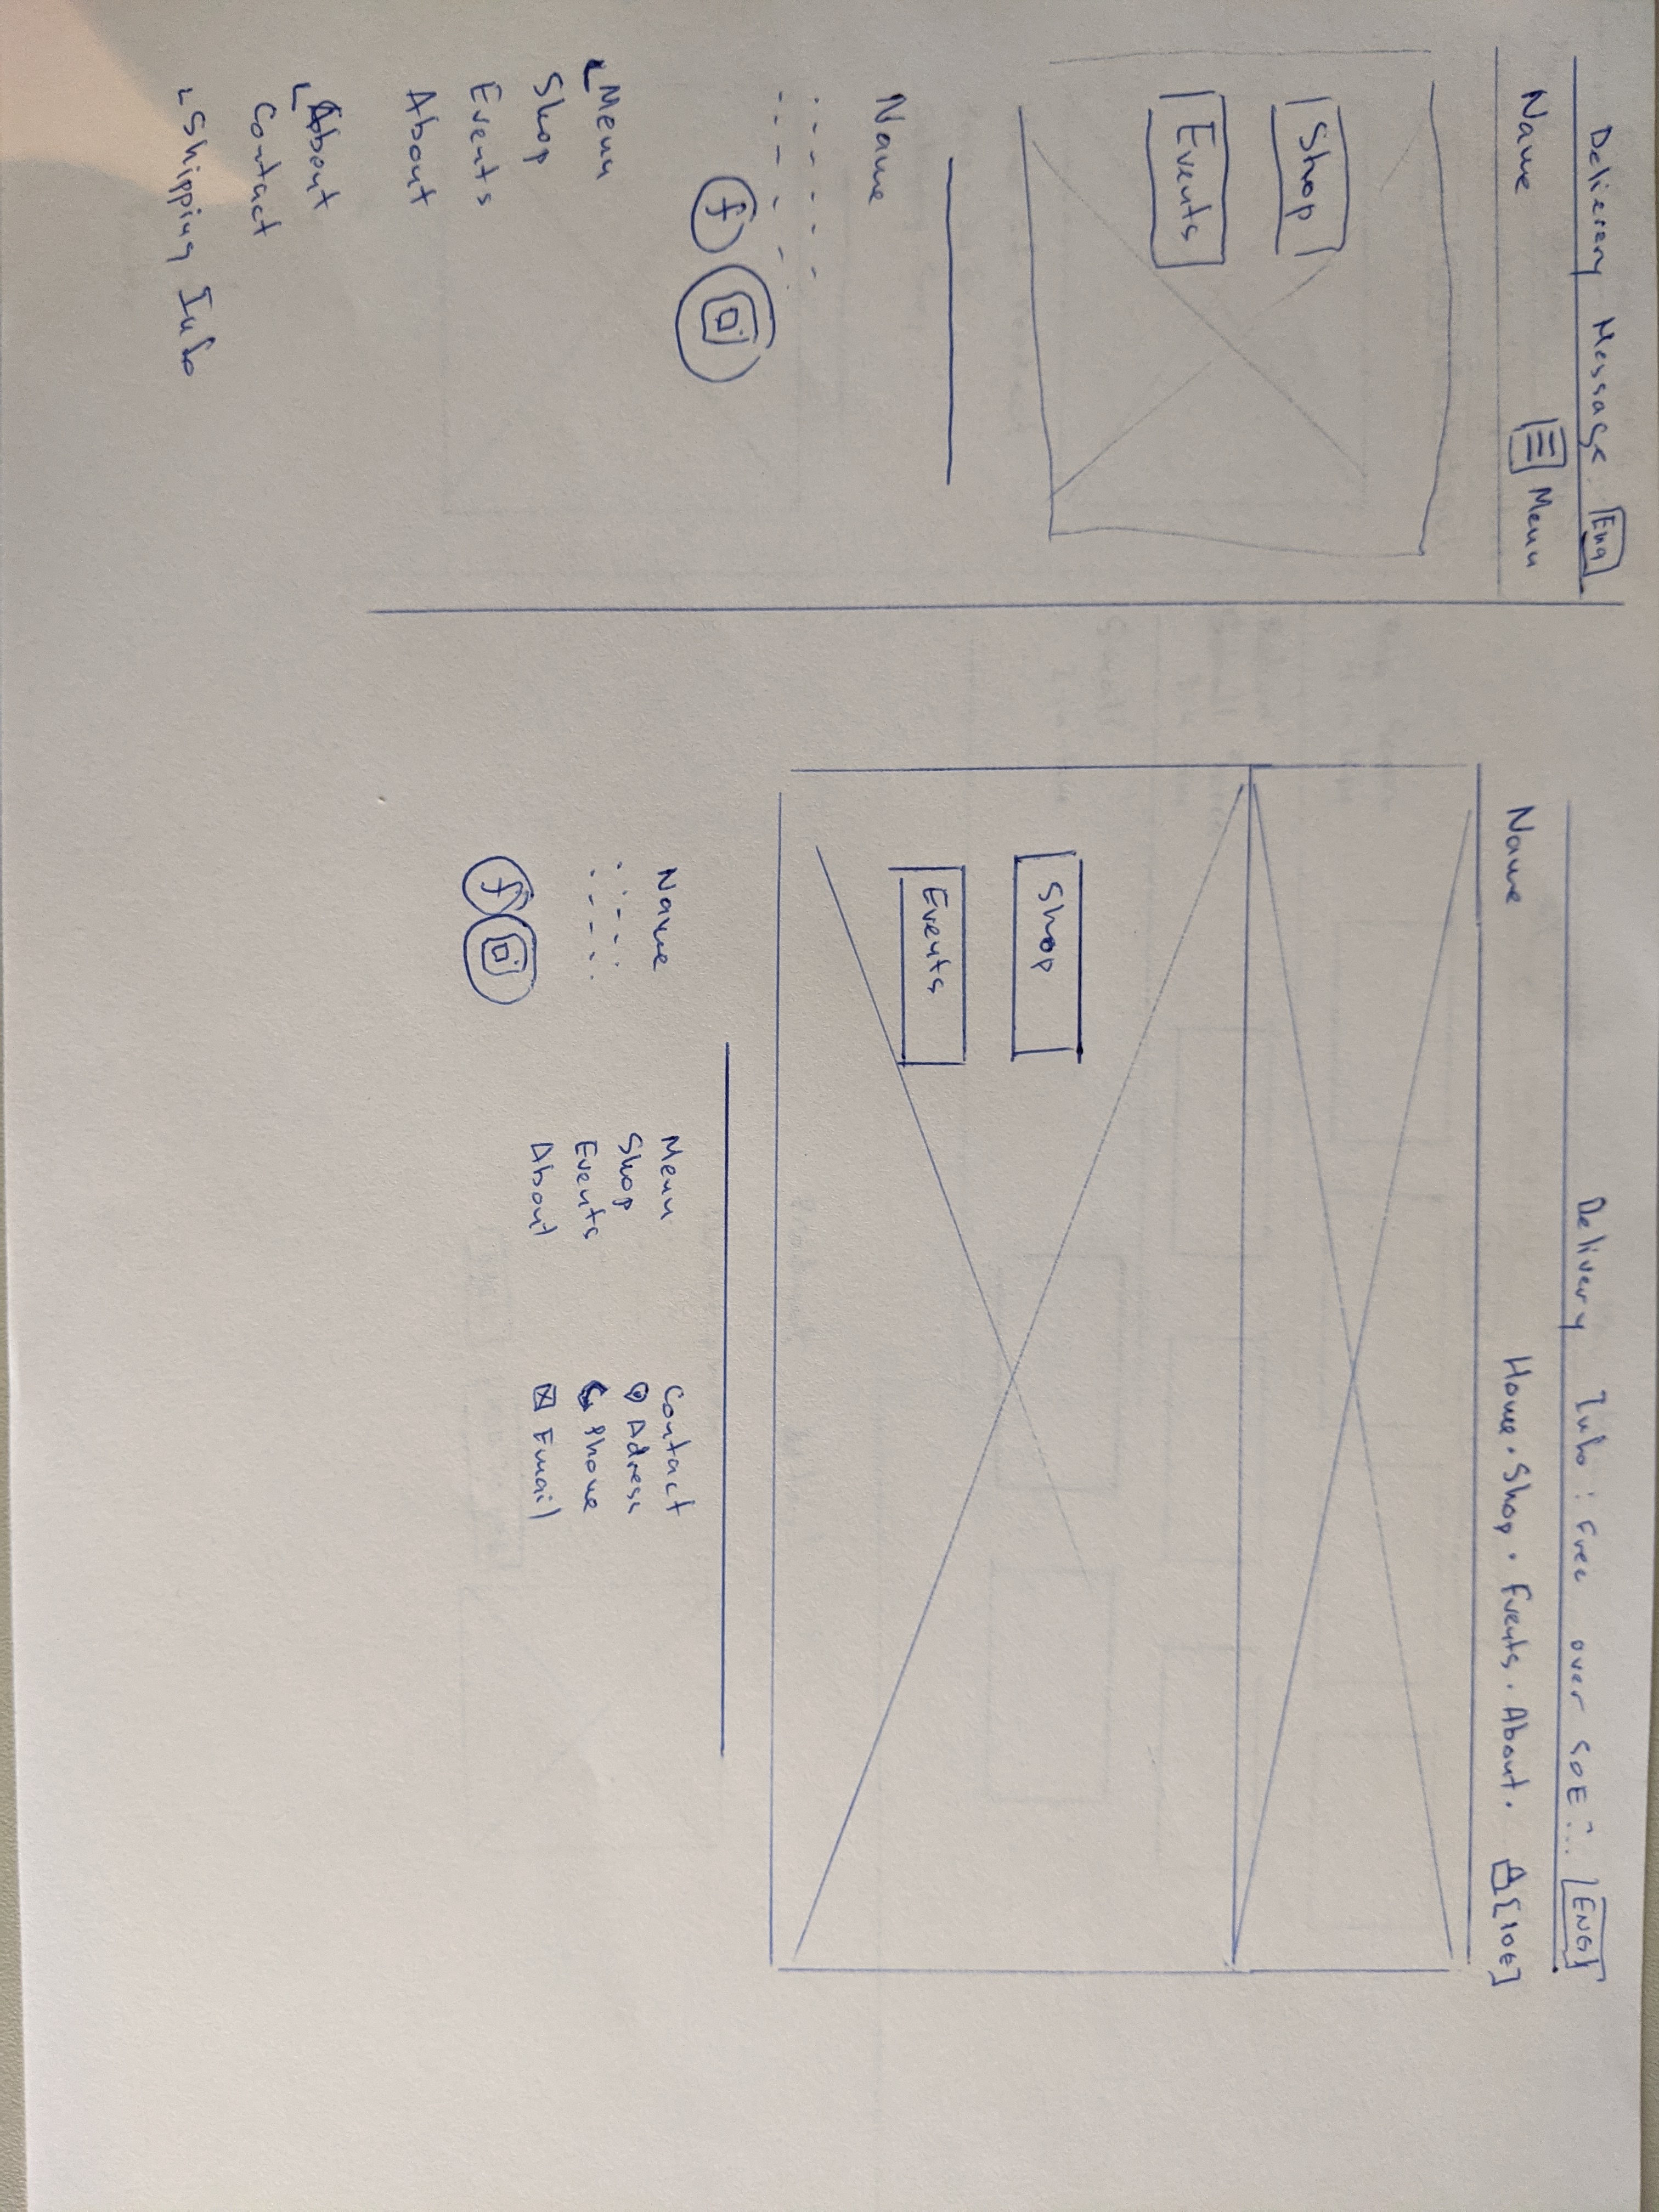 Delierery Message Eng
Name Menu
Shop
Events
Name
f
Menu
Shop
Events
About
About
Contact
Shipping Info
Delivery Info : Free over 50€ :.. ENG
Name Home · Shop · Events · About · [10€]
Shop
Events
Name Menu Contact
Shop Adress
Events Phone
About Email
f